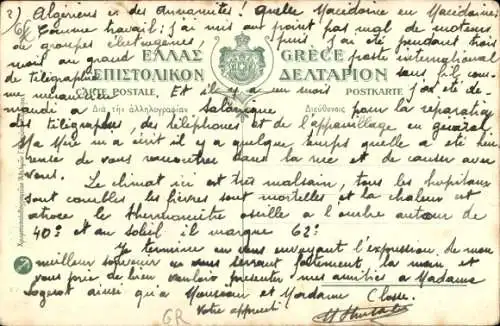 2) Algériens ni des Annamites ! quelle Macédoine en Macédoine
Comme travail : j'ai mis au point pas mal de moteurs,
de groupes électrogènes, puis j'ai été pendant trois
mois au grand poste international
ΕΛΛΑΣ GRÈCE
de télégraphie sans fil comme
ΕΠΙΣΤΟΛΙΚΟΝ ΔΕΛΤΑΡΙΟΝ
CARTE POSTALE, POSTKARTE
Et il y a un mois j'ai été de-
Διὰ τὴν ἀλληλογραφίαν Διεύθυνσις
mandé à Salonique pour la réparation
des télégraphes, des téléphones et de l'appareillage en
Ma Mère m'a écrit il y a quelque temps qu'elle a été heu-
reuse de vous rencontrer dans la rue et de causer avec
vous.
Le climat ici est très malsain, tous les hôpitaux
sont combles les fièvres sont mortelles et la chaleur est
atroce le thermomètre oscille à l'ombre autour de
40° et au soleil il marque 62°
Je termine en vous envoyant l'expression de mon
meilleur souvenir en vous serrant fortement la main et
vous prie de bien vouloir présenter mes amitiés à Madame
Logerot ainsi qu'à Monsieur et Madame Closse.
Votre apprenti
GR